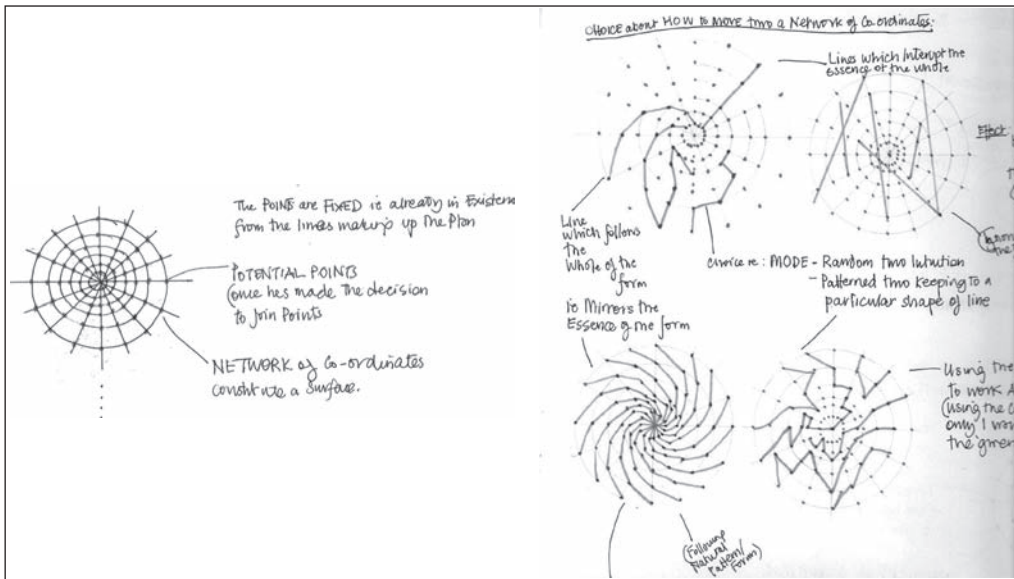 The POINTS are FIXED ie already in Existen
from the lines making up the Plan
POTENTIAL POINTS
(once hes made the decision
to Join Points
NETWORK of Co-ordinates
constitute a surface.
CHOICE about HOW to MOVE two a Network of Co-ordinates:
Lines which Interupt the
essence of the whole
Effect:
Line
which follows
the
Whole of the
form
ie Mirrors the
Essence of the form
choice re: MODE - Random two Intuition
- Patterned two keeping to a
particular shape of line
Using the
to work A
(using the c
only I wo
the
(Following
Natural
Pattern/
Form)